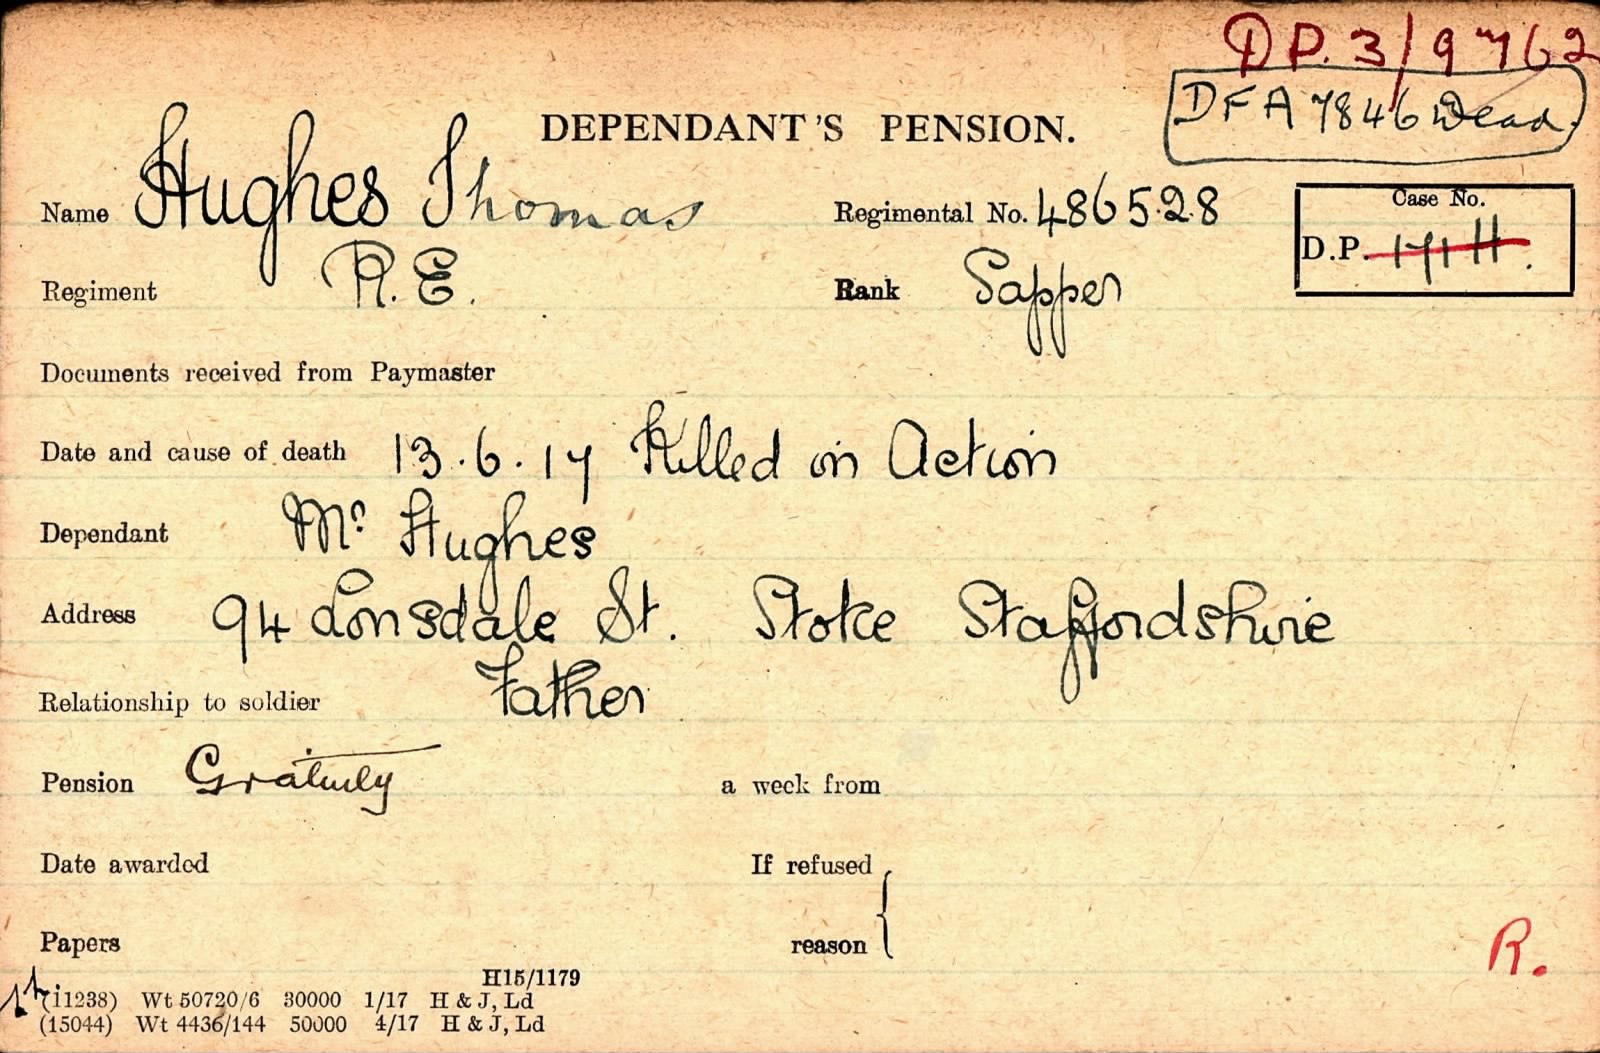 DP. 3/9762
DFA 7846 Dead.
DEPENDANT'S PENSION.
Name Hughes Thomas Regimental No. 486528 Case No.
Regiment R.E. Rank Sapper D.P. 171 H.
Documents received from Paymaster
Date and cause of death 13.6.17 Killed in Action
Dependant Mr Hughes
Address 94 Lonsdale St. Stoke Staffordshire
Relationship to soldier Father
Pension Gratuity a week from
Date awarded If refused
Papers reason
R.
H15/1179
(11238) Wt 50720/6 30000 1/17 H & J, Ld
(15044) Wt 4436/144 50000 4/17 H & J, Ld